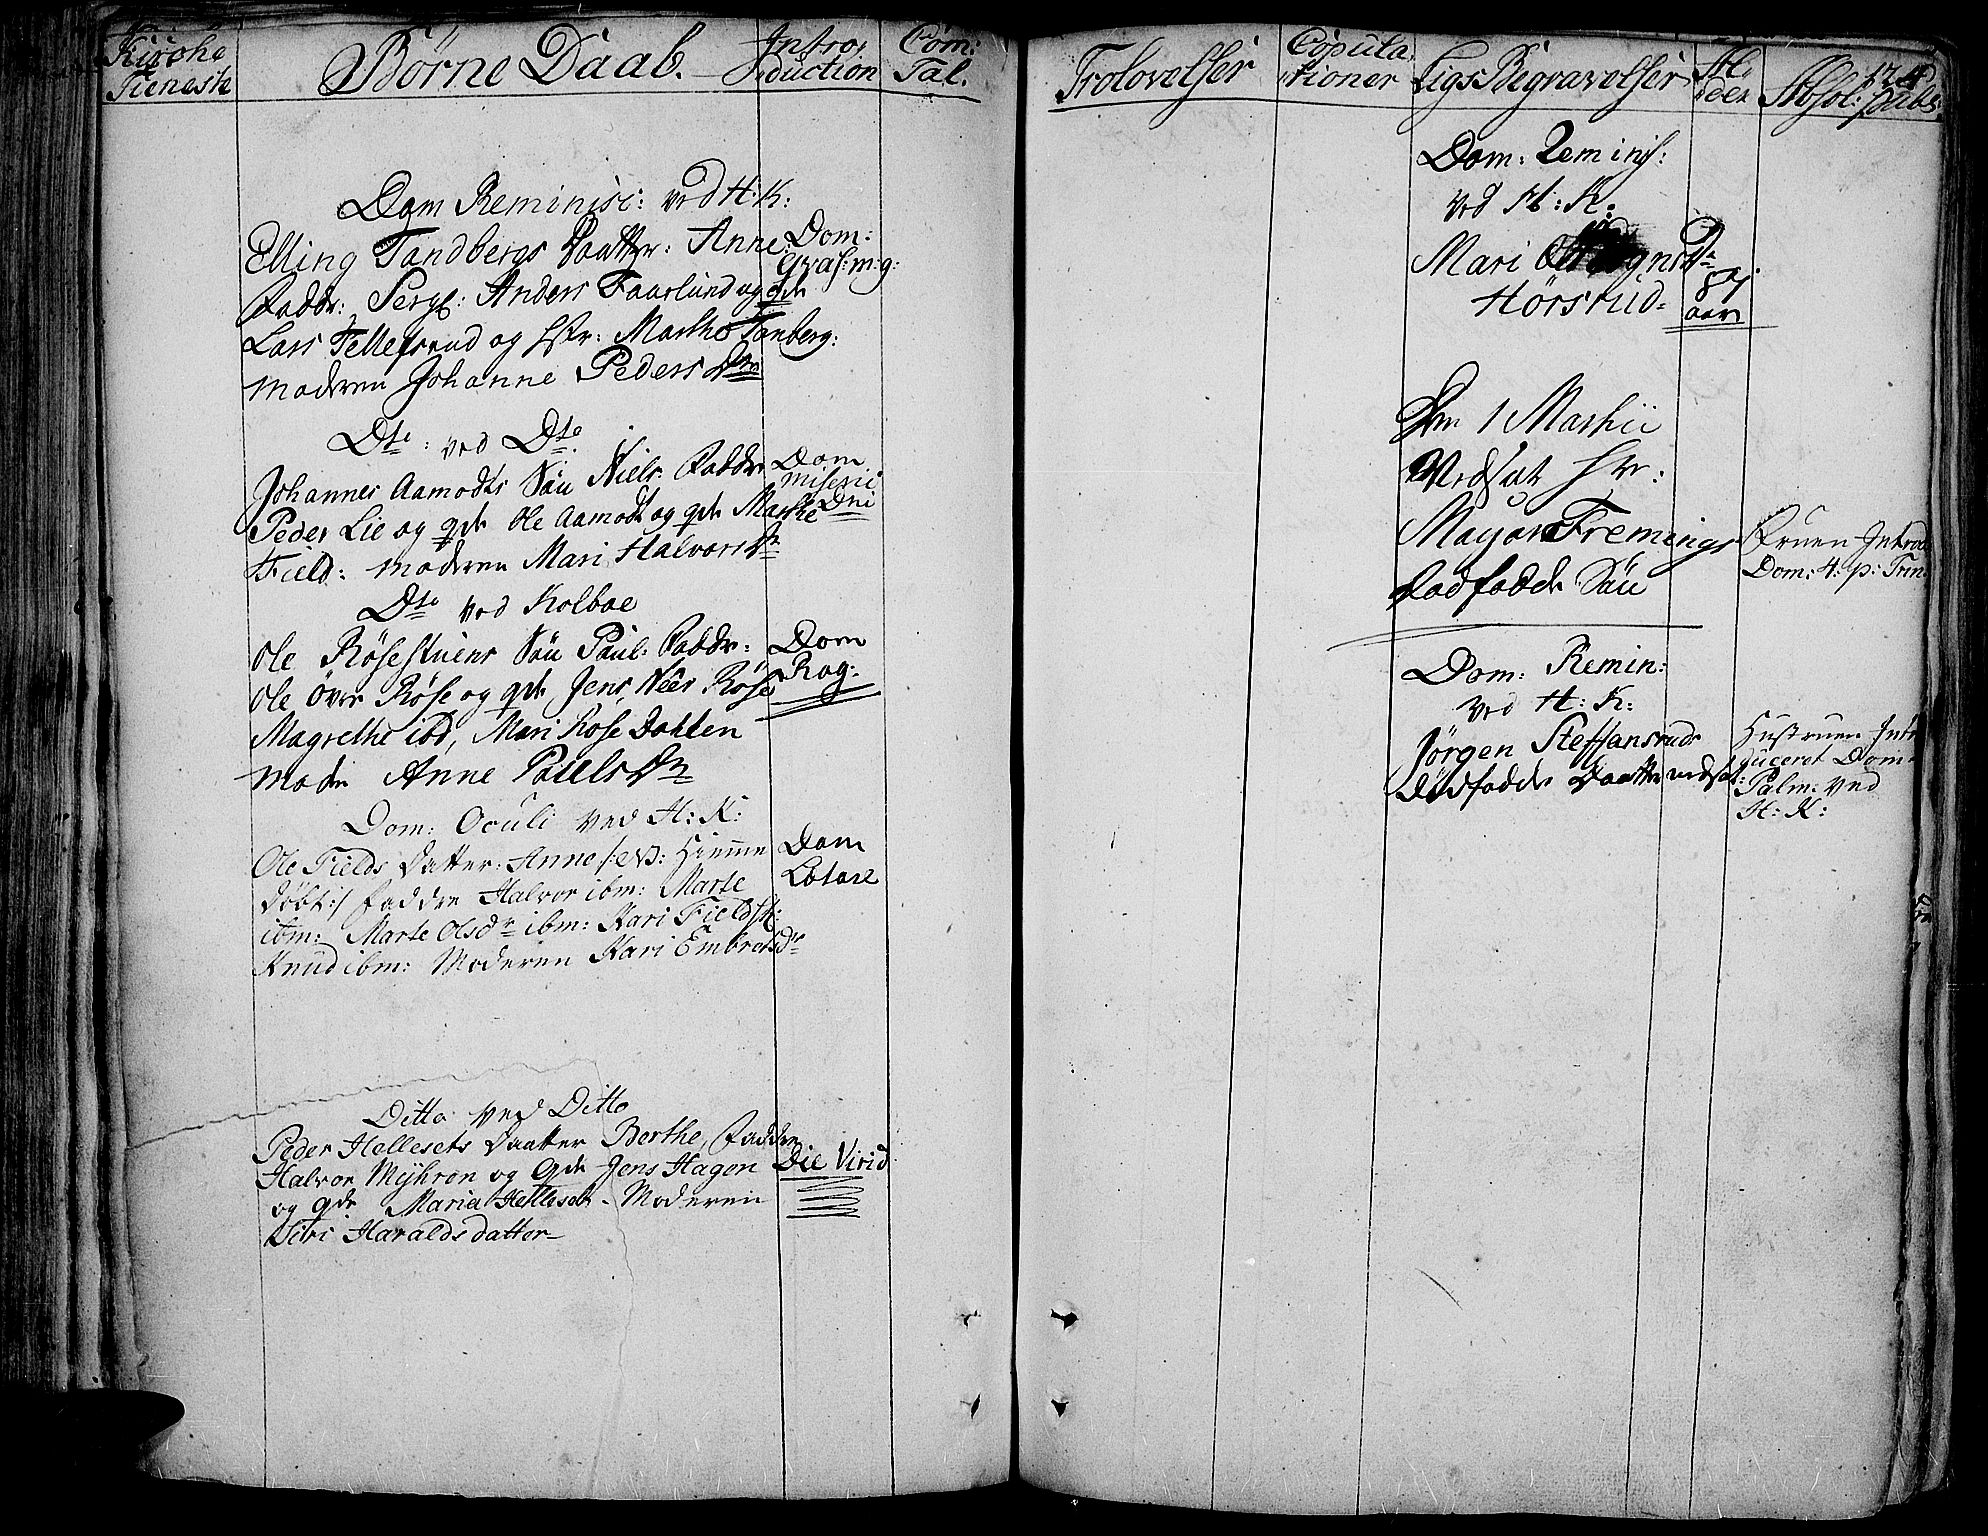 Kirche
Tienest
Börne Daab.
Intro,
duction
Com:
Tal.
Dom Reminisc: ved H: K:
Elling Tandbergs Daatter: Anne
Faddr: Serg: Anders Faarlund og gde
Lars Tellefsrud og Hr: Marthe Tanberg:
moderen Johanne Peders Dr
Dom:
Qvas: m: g:
Dto: ved Dto
Johannes Aamodts Sön Niels. Faddr
Peder Lie og gde Ole Aamodt og gde Marthe
Field: moderen Mari Halvors Dr
Dom
miseric
Dni
Dto ved Kolboe
Ole Røsestuens Sön Paul: Faddr:
Ole Över Røse og gde Jens Neer Røse
Magrethe ibd, Mari Rose Dahlen
modr Anne Pauls Dr
Dom
Rog:
Dom: Oculi ved H: K:
Ole Fields Datter: Anne /: eB: Hiemme
döbt:/ faddre Halvor ibm: Marte
ibm: Marte Olsdr ibm: Kari Field
Knud ibm: Moderen Kari Embretsdr
Dom
Lætare
Ditto ved Ditto
Peder Hellesets Daatter Berthe, Faddre
Halvor Mÿhren og Gde Jens Hagen
og gde Maria Helleset - Moderen
Siri Haraldsdatter
Die Virid
Trolovelser
Copula
tioner
Ligs Begravelser
Al
der
Absol: publ:
124
Dom: Reminis:
ved H: K:
Mari
Hörsrud
87
aar
Den 1 Martii
Nedsat Hr:
Mayor Fremings
dødfødde Sön
Fruen Introd
Dom: 4. p: Trin.
Dom: Remin:
ved H: K:
Jørgen Steffansruds
Dødfødde Daatter nedsat
Hustruen Intro
duceret Dom:
Palm: ved
H: K: